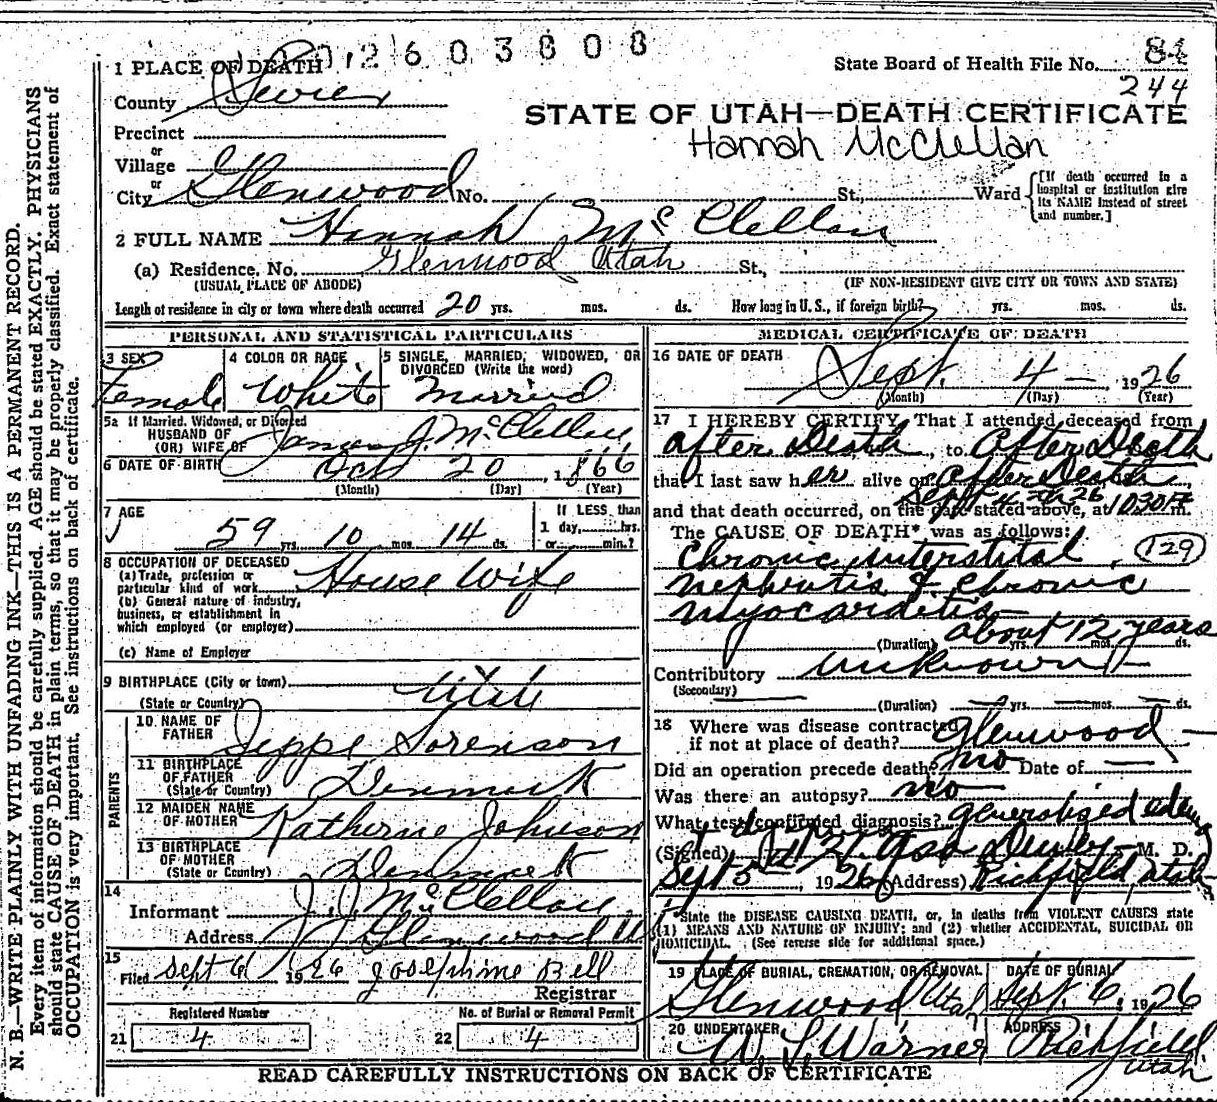 2603808
State Board of Health File No. 84
244
1 PLACE OF DEATH
County Sevier
STATE OF UTAH—DEATH CERTIFICATE
Hannah McClellan
Precinct
or
Village
or
City Glenwood No. St., Ward
[If death occurred in a hospital or institution give its NAME instead of street and number.]
2 FULL NAME Hannah McClellan
(a) Residence. No. Glenwood Utah St.,
(USUAL PLACE OF ABODE) (IF NON-RESIDENT GIVE CITY OR TOWN AND STATE)
Length of residence in city or town where death occurred 20 yrs. mos. ds. How long in U. S., if foreign birth? yrs. mos. ds.
PERSONAL AND STATISTICAL PARTICULARS
3 SEX Female
4 COLOR OR RACE White
5 SINGLE, MARRIED, WIDOWED, OR DIVORCED (Write the word) Married
5a If Married, Widowed, or Divorced
HUSBAND OF
(OR) WIFE OF James J. McClellan
6 DATE OF BIRTH Oct 20, 1866
(Month) (Day) (Year)
7 AGE
59 yrs. 10 mos. 14 ds.
If LESS than
1 day, hrs.
or min.?
8 OCCUPATION OF DECEASED
(a) Trade, profession or particular kind of work House Wife
(b) General nature of industry, business, or establishment in which employed (or employer)
(c) Name of Employer
9 BIRTHPLACE (City or town)
(State or Country) Utah
PARENTS
10 NAME OF FATHER Jeppe Sorenson
11 BIRTHPLACE OF FATHER (State or Country) Denmark
12 MAIDEN NAME OF MOTHER Katherne Johnson
13 BIRTHPLACE OF MOTHER (State or Country) Denmark
14
Informant J. J. McClellan
Address Glenwood U
15
Filed Sept 6 1926 Josephine Bell
Registrar
Registered Number
21 4
No. of Burial or Removal Permit
22 4
MEDICAL CERTIFICATE OF DEATH
16 DATE OF DEATH
Sept. 4, 1926
(Month) (Day) (Year)
17 I HEREBY CERTIFY, That I attended deceased from
after Death, to After Death
that I last saw her alive on After Death,
Sept 4th 26 1030 P
and that death occurred, on the date stated above, at m.
The CAUSE OF DEATH* was as follows:
Chronic interstital 129
nephritis & chronic
myocarditis
(Duration) about 12 years yrs. mos. ds.
Contributory unknown
(Secondary)
(Duration) yrs. mos. ds.
18 Where was disease contracted
if not at place of death? Glenwood
Did an operation precede death? no Date of
Was there an autopsy? no
What test confirmed diagnosis? generalized edema
(Signed) M. D.
Sept 5, 1926 (Address) Richfield, Utah
*State the DISEASE CAUSING DEATH, or, in deaths from VIOLENT CAUSES state
(1) MEANS AND NATURE OF INJURY; and (2) whether ACCIDENTAL, SUICIDAL OR
HOMICIDAL. (See reverse side for additional space.)
19 PLACE OF BURIAL, CREMATION, OR REMOVAL
Glenwood Utah
DATE OF BURIAL
Sept. 6, 1926
20 UNDERTAKER
W. L. Warner
ADDRESS
Richfield Utah
READ CAREFULLY INSTRUCTIONS ON BACK OF CERTIFICATE
N. B.—WRITE PLAINLY WITH UNFADING INK—THIS IS A PERMANENT RECORD.
Every item of information should be carefully supplied. AGE should be stated EXACTLY. PHYSICIANS
should state CAUSE OF DEATH in plain terms, so that it may be properly classified. Exact statement of
OCCUPATION is very important. See instructions on back of certificate.